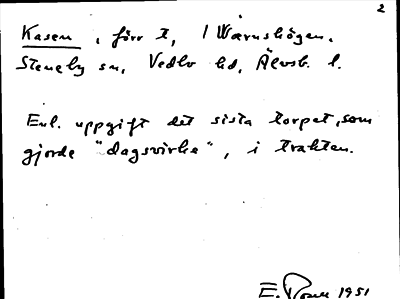 2
Kasen, förr t, 1 Wærnshögen.
Steneby sn, Vedbo hd, Älvsb. l.
Enl. uppgift det sista torpet, som
gjorde "dagsvirke", i trakten.
E. 1951